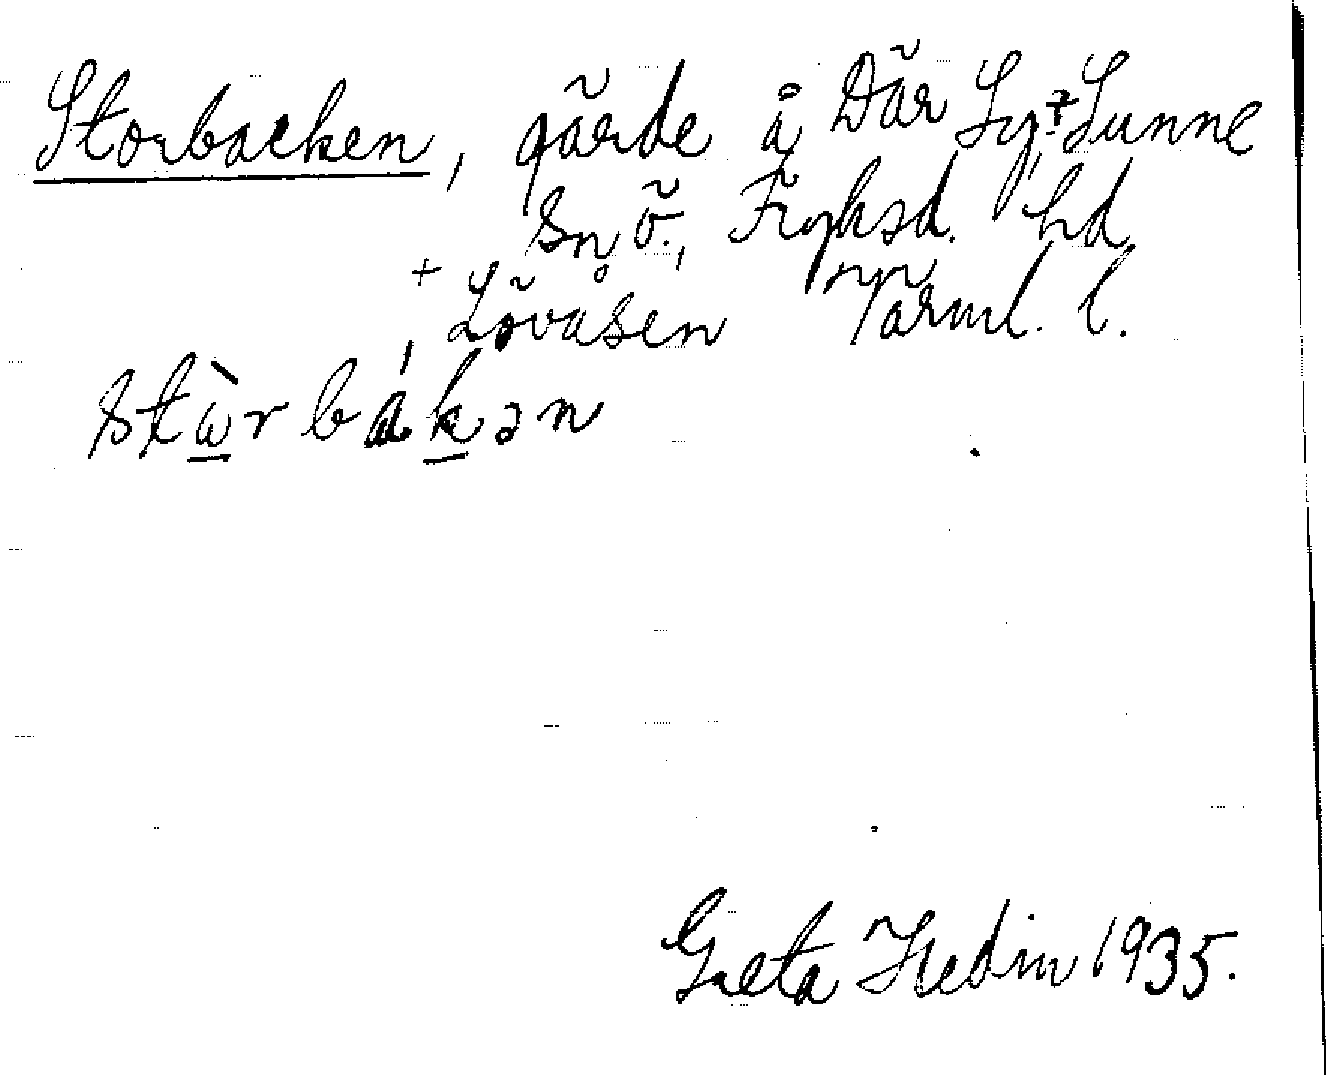 Storbacken, gärde å Där Sg, + Sunne
Sn ö., Fryksd. hd
+ Lövåsen Värml. l.
stωrbakən
Greta Hedin 1935.